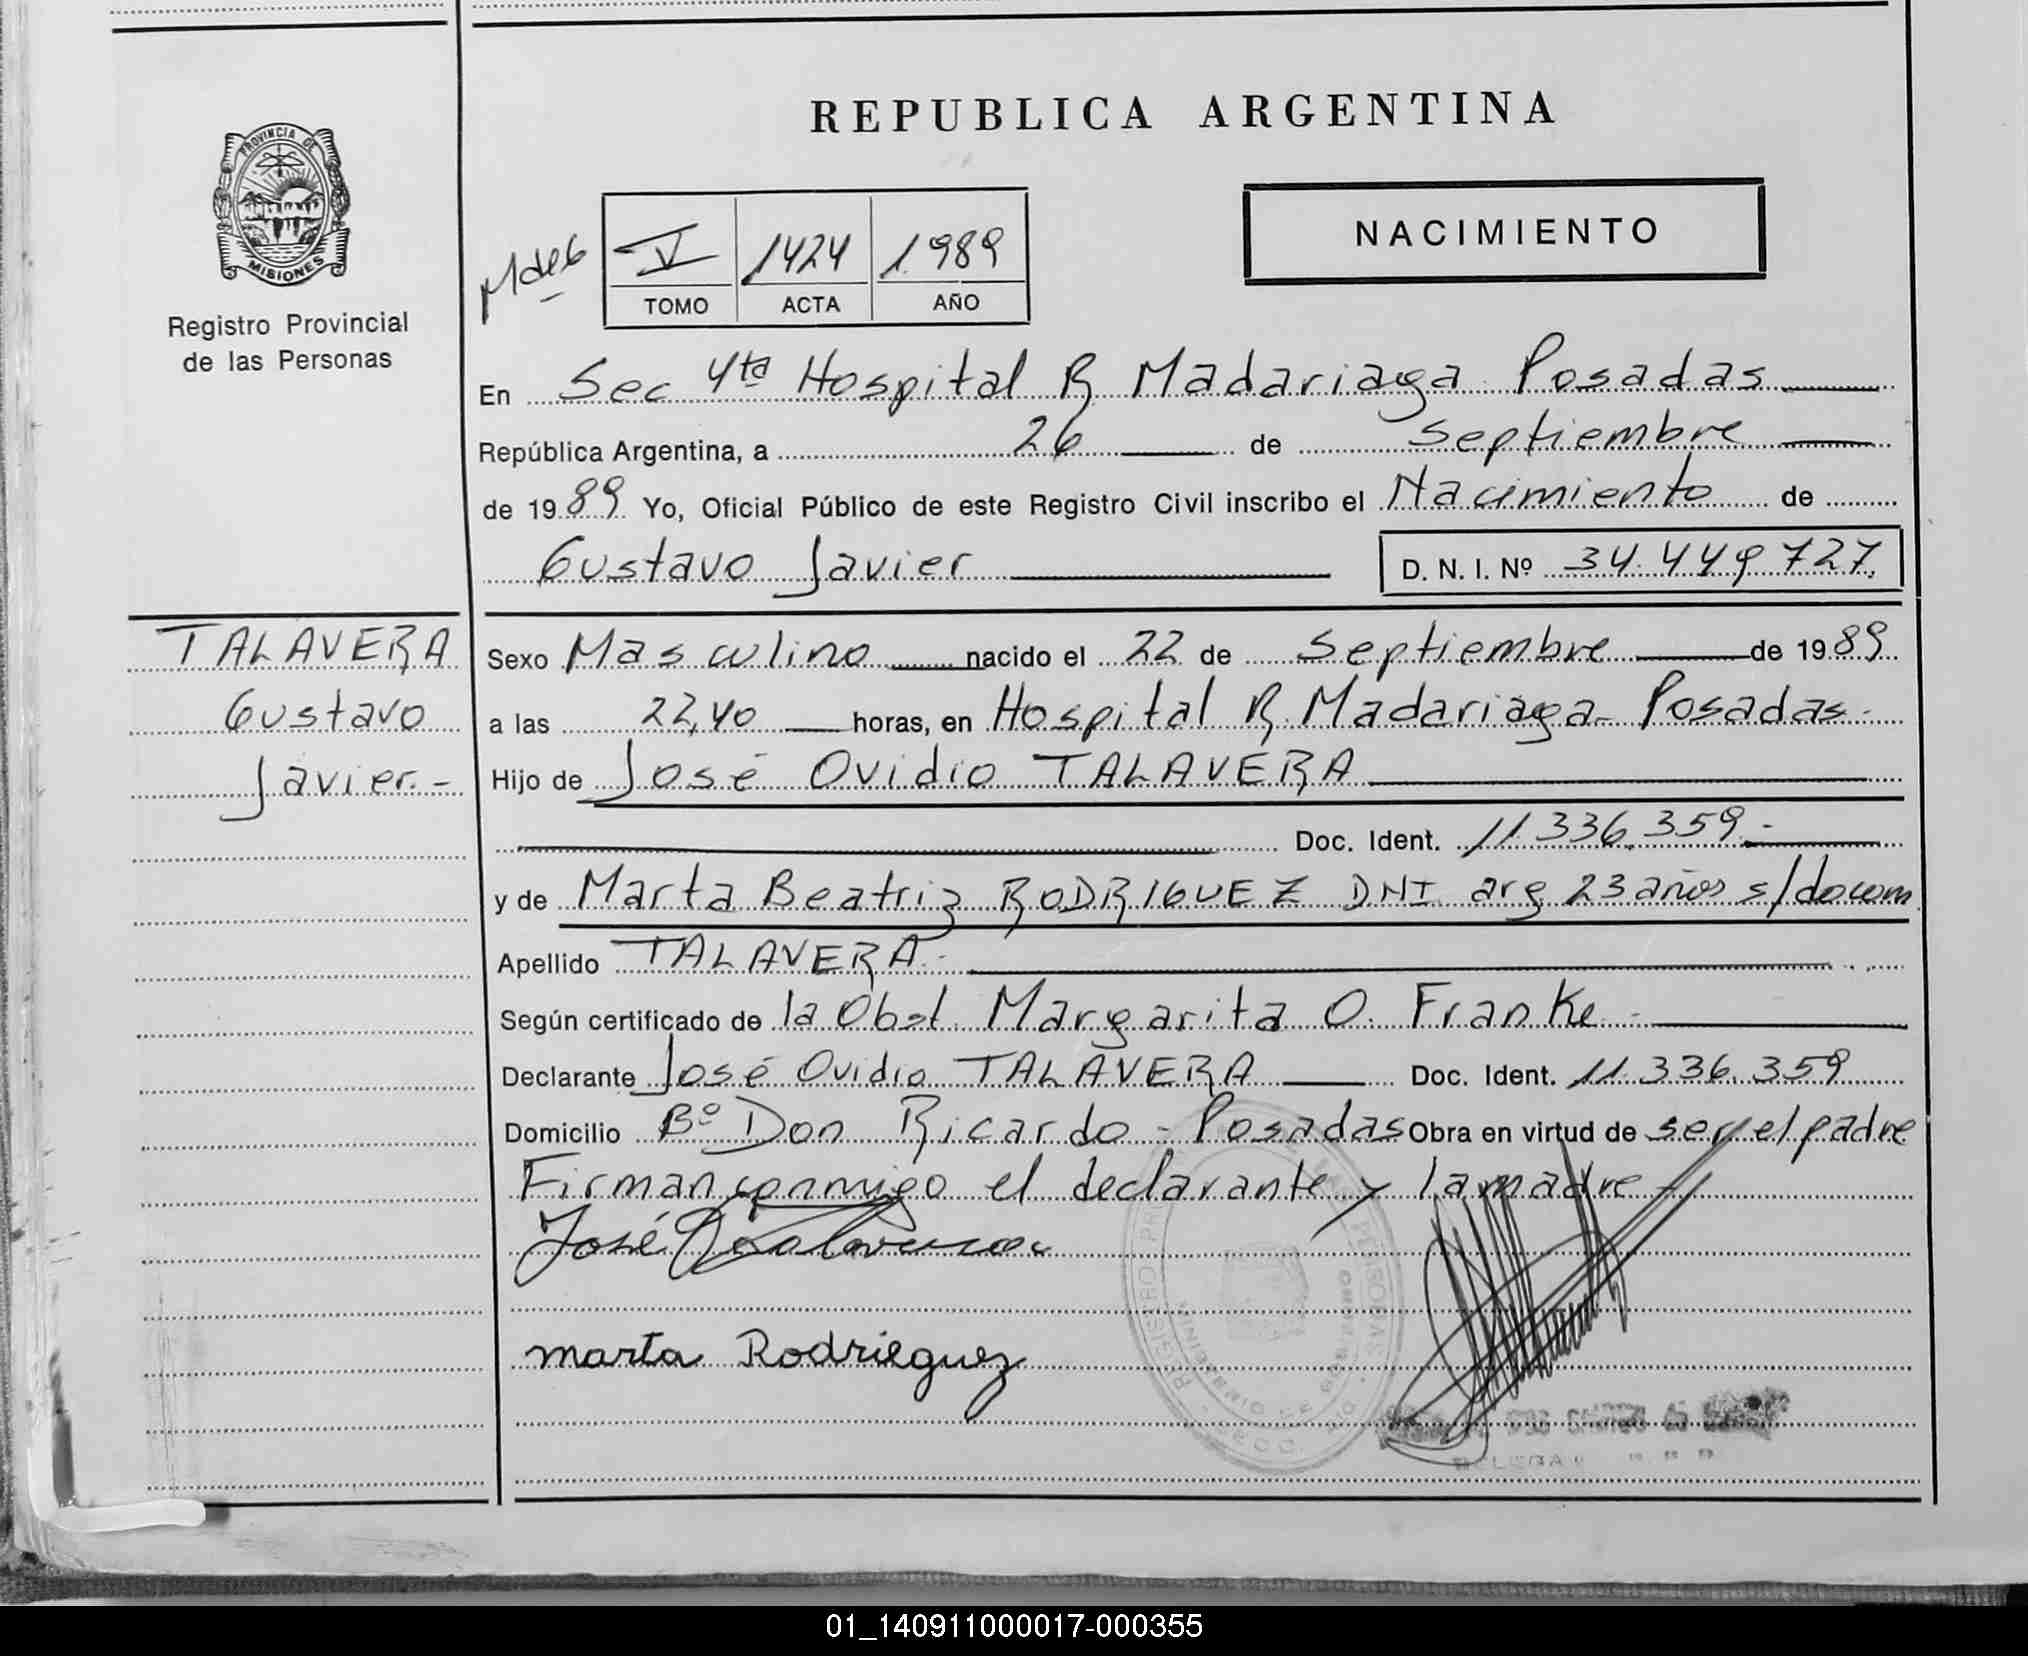 PROVINCIA DE
MISIONES
Registro Provincial
de las Personas
REPUBLICA ARGENTINA
NACIMIENTO
V 1424 1989
TOMO ACTA AÑO
En Sec 4ta Hospital R Madariaga Posadas
República Argentina, a 26 de Septiembre
de 1989 Yo, Oficial Público de este Registro Civil inscribo el Nacimiento de
Gustavo Javier D. N. I. Nº 34.449727.
TALAVERA
Gustavo
Javier.-
Sexo Masculino nacido el 22 de Septiembre de 1989
a las 22,40 horas, en Hospital R. Madariaga Posadas.
Hijo de José Ovidio TALAVERA
Doc. Ident. 11.336.359.-
y de Marta Beatriz RODRIGUEZ DNI arg 23 años s/docum
Apellido TALAVERA.-
Según certificado de la Obst. Margarita O. Franke.-
Declarante José Ovidio TALAVERA Doc. Ident. 11.336.359
Domicilio Bº Don Ricardo - Posadas Obra en virtud de ser el padre
Firman conmigo el declarante y la madre.-
José O Talavera
marta Rodrieguez
01_140911000017-000355